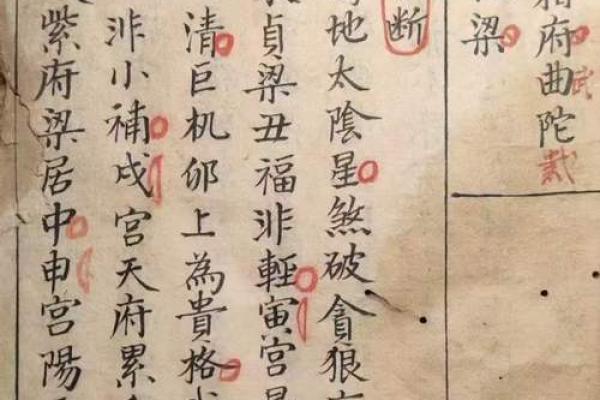 府曲陀
武
戴
梁
断
地太陰星煞破貪狼
貞梁丑福非輕寅宮
清巨机卯上為貴格
非小補戌宮天府累
紫府梁居中申宮陽